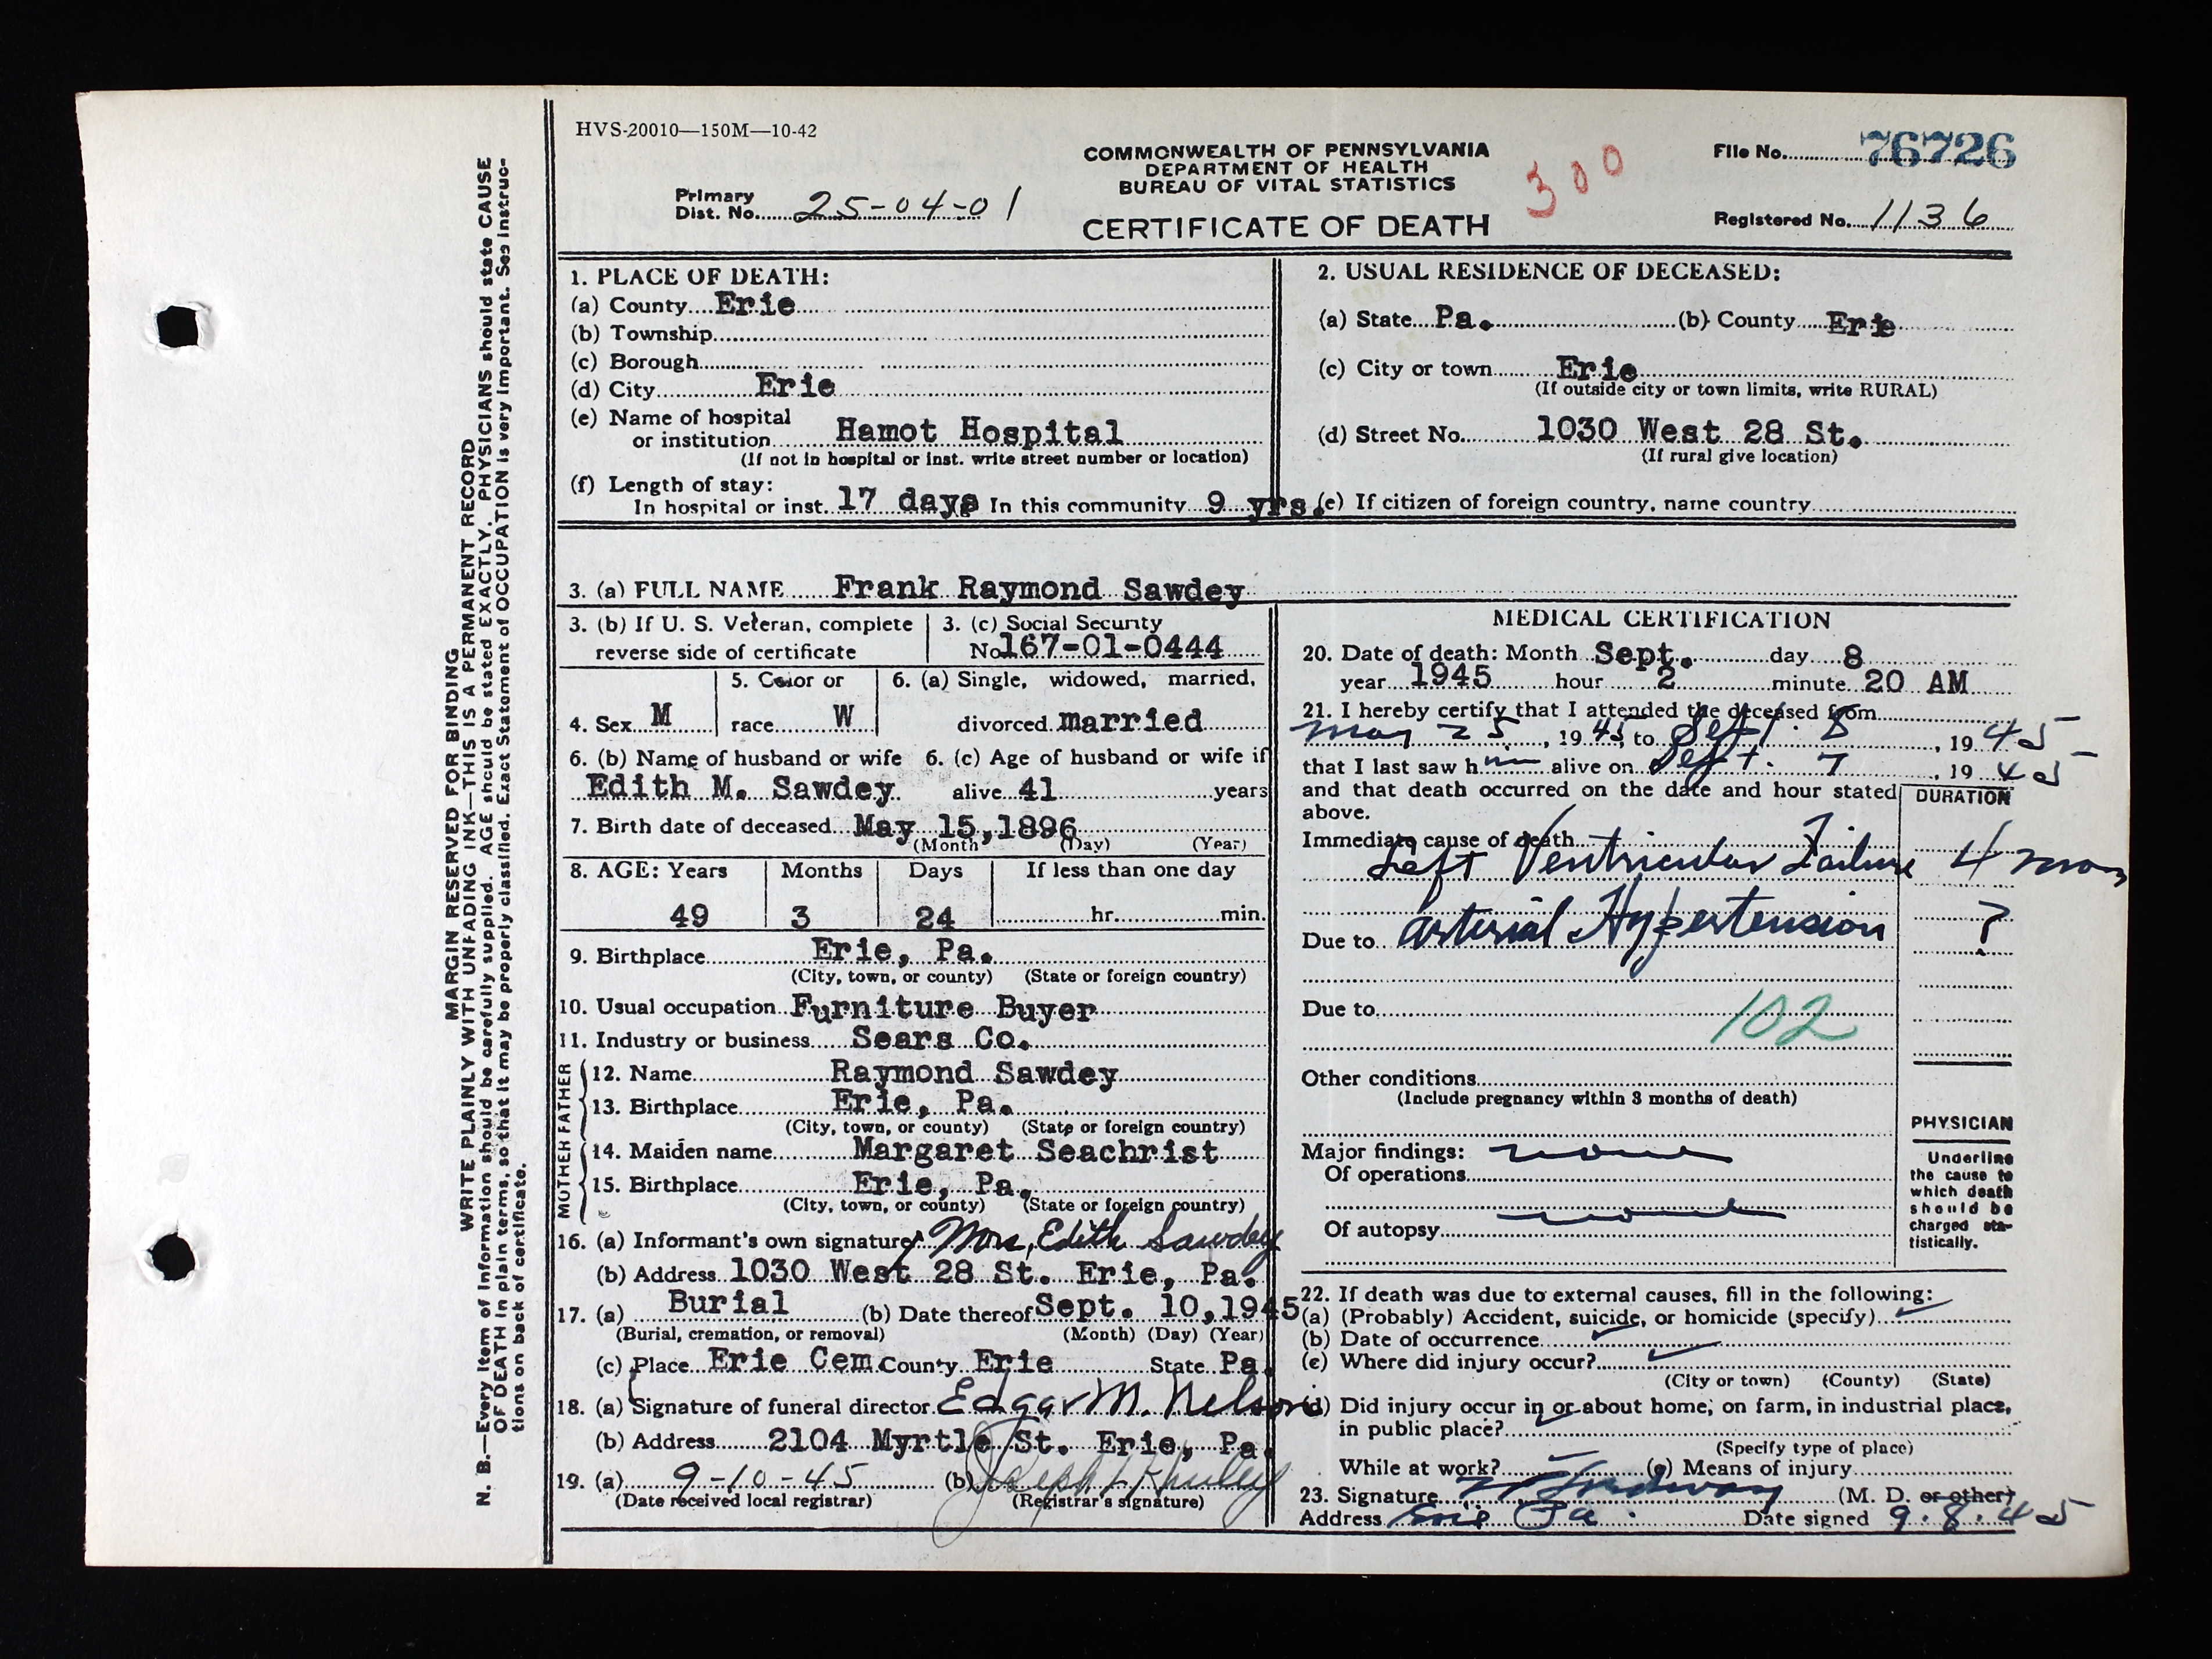 HVS-20010—150M—10-42
COMMONWEALTH OF PENNSYLVANIA
DEPARTMENT OF HEALTH
BUREAU OF VITAL STATISTICS
CERTIFICATE OF DEATH
300
File No. 76726
Primary
Dist. No. 25-04-01
Registered No. 1136
MARGIN RESERVED FOR BINDING
WRITE PLAINLY WITH UNFADING INK—THIS IS A PERMANENT RECORD
N. B.—Every item of information should be carefully supplied. AGE should be stated EXACTLY. PHYSICIANS should state CAUSE
OF DEATH in plain terms, so that it may be properly classified. Exact Statement of OCCUPATION is very important. See instruc-
tions on back of certificate.
1. PLACE OF DEATH:
(a) County Erie
(b) Township
(c) Borough
(d) City Erie
(e) Name of hospital
or institution Hamot Hospital
(If not in hospital or inst. write street number or location)
(f) Length of stay:
In hospital or inst. 17 days In this community 9 yrs.
2. USUAL RESIDENCE OF DECEASED:
(a) State Pa. (b) County Erie
(c) City or town Erie
(If outside city or town limits, write RURAL)
(d) Street No. 1030 West 28 St.
(If rural give location)
(e) If citizen of foreign country, name country
3. (a) FULL NAME Frank Raymond Sawdey
3. (b) If U. S. Veteran, complete
reverse side of certificate
3. (c) Social Security
No. 167-01-0444
4. Sex M
5. Color or
race W
6. (a) Single, widowed, married,
divorced married
6. (b) Name of husband or wife
Edith M. Sawdey
6. (c) Age of husband or wife if
alive 41 years
7. Birth date of deceased May 15,1896
(Month) (Day) (Year)
8. AGE: Years Months Days If less than one day
49 3 24 hr. min.
9. Birthplace Erie, Pa.
(City, town, or county) (State or foreign country)
10. Usual occupation Furniture Buyer
11. Industry or business Sears Co.
FATHER
12. Name Raymond Sawdey
13. Birthplace Erie, Pa.
(City, town, or county) (State or foreign country)
MOTHER
14. Maiden name Margaret Seachrist
15. Birthplace Erie, Pa.
(City, town, or county) (State or foreign country)
16. (a) Informant's own signature Mrs, Edith Sawdey
(b) Address 1030 West 28 St. Erie, Pa.
17. (a) Burial (b) Date thereof Sept. 10,1945
(Burial, cremation, or removal) (Month) (Day) (Year)
(c) Place Erie Cem County Erie State Pa.
18. (a) Signature of funeral director Edgar M. Nelson
(b) Address 2104 Myrtle St. Erie, Pa.
19. (a) 9-10-45 (b) Joseph
(Date received local registrar) (Registrar's signature)
MEDICAL CERTIFICATION
20. Date of death: Month Sept. day 8
year 1945 hour 2 minute 20 AM
21. I hereby certify that I attended the deceased from
May 25, 1945 to Sept. 8, 1945
that I last saw him alive on Sept. 7, 1945
and that death occurred on the date and hour stated
above.
DURATION
Immediate cause of death
Left Ventricular Failure 4 mos
Due to arterial Hypertension ?
Due to
102
Other conditions
(Include pregnancy within 3 months of death)
Major findings: none
Of operations
Of autopsy none
PHYSICIAN
Underline
the cause to
which death
should be
charged sta-
tistically.
22. If death was due to external causes, fill in the following:
(a) (Probably) Accident, suicide, or homicide (specify)
(b) Date of occurrence
(c) Where did injury occur?
(City or town) (County) (State)
(d) Did injury occur in or about home, on farm, in industrial place,
in public place?
(Specify type of place)
While at work? (e) Means of injury
23. Signature (M. D. or other)
Address Erie Pa. Date signed 9.8.45